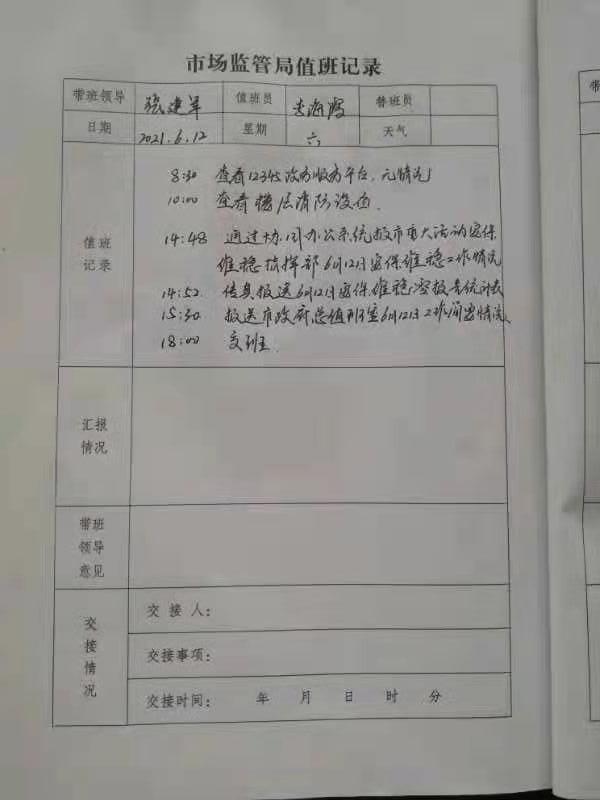 市场监管局值班记录
带班领导 张建军 值班员 李海鸥 替班员
日期 2021.6.12 星期 六 天气
值班记录
8:30 查看12345政务服务平台,无情况
10:00 查看楼层消防设备.
14:48 通过协同办公系统报市重大活动安保
维稳指挥部6月12日安保维稳工作情况
14:52 传真报送6月12日安保维稳零报告统计表
15:30 报送市政府总值班室6月12日工作日志情况
18:00 交班.
汇报情况
带班领导意见
交接情况
交 接 人:
交接事项:
交接时间: 年 月 日 时 分